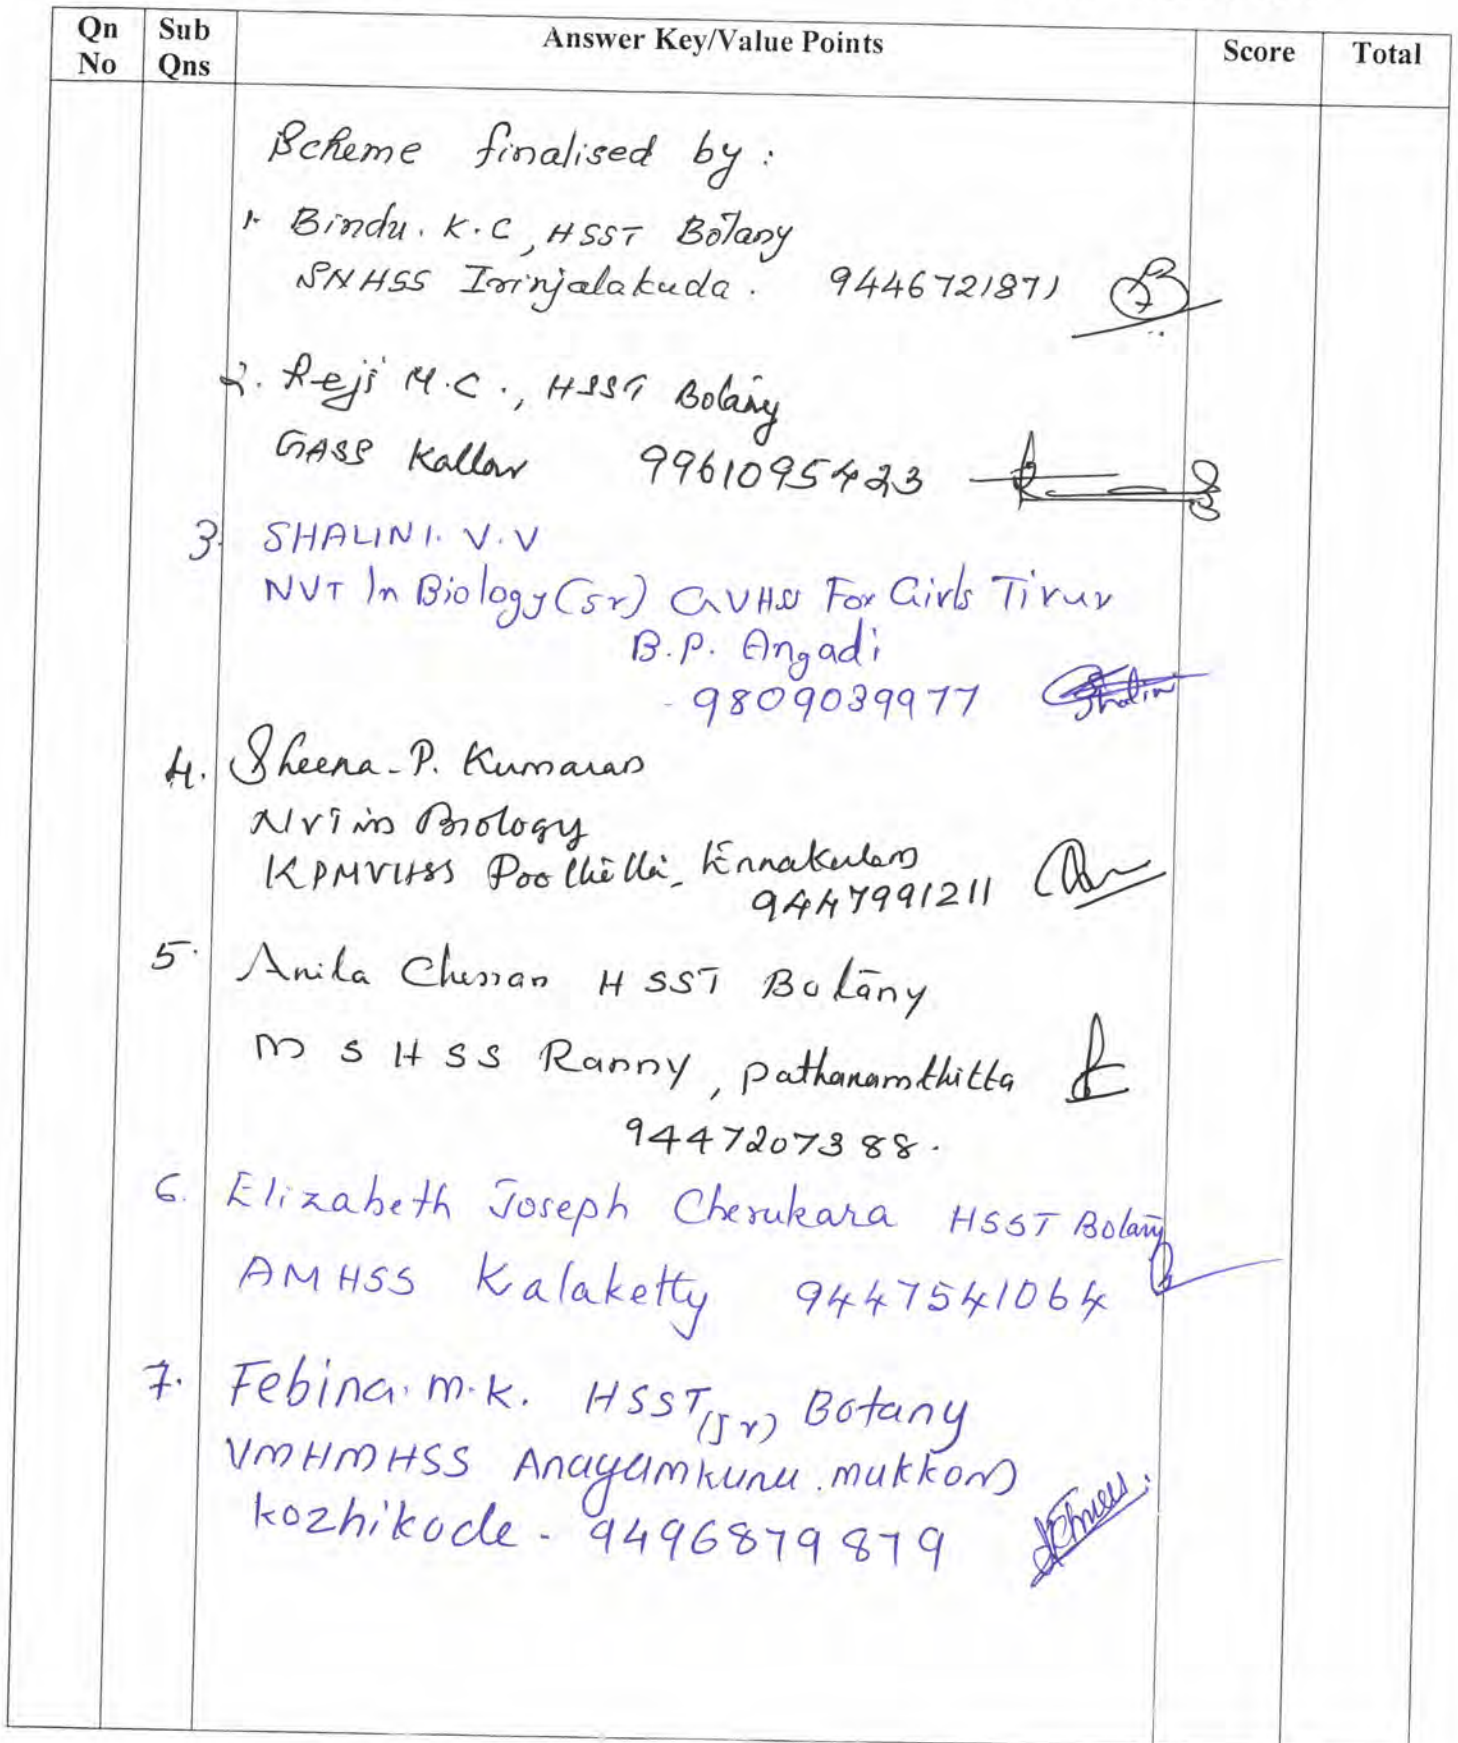 Qn No
Sub Qns
Answer Key/Value Points
Score
Total
Scheme finalised by :
1. Bindu. K.C, HSST Botany
SNHSS Irinjalakuda. 9446721871
2. Reji M.C., HSST Botany
Kallar 9961095423
3. SHALINI. V.V
NVT In Biology (Sr) GVHSS For Girls Tirur
B.P. Angadi
- 9809039977
4. Sheena - P. Kumaran
NVT in Biology
KPMVHSS Poothotta, Ernakulam
9447991211
5. Anila Cherian HSST Botany
M S H S S Ranny, Pathanamthitta
9447207388.
6. Elizabeth Joseph Cherukara HSST Botany
AMHSS Kalaketty 9447541064
7. Febina. M.K. HSST (Jr) Botany
VMHMHSS Anayamkunu. mukkom
kozhikode - 9496879879